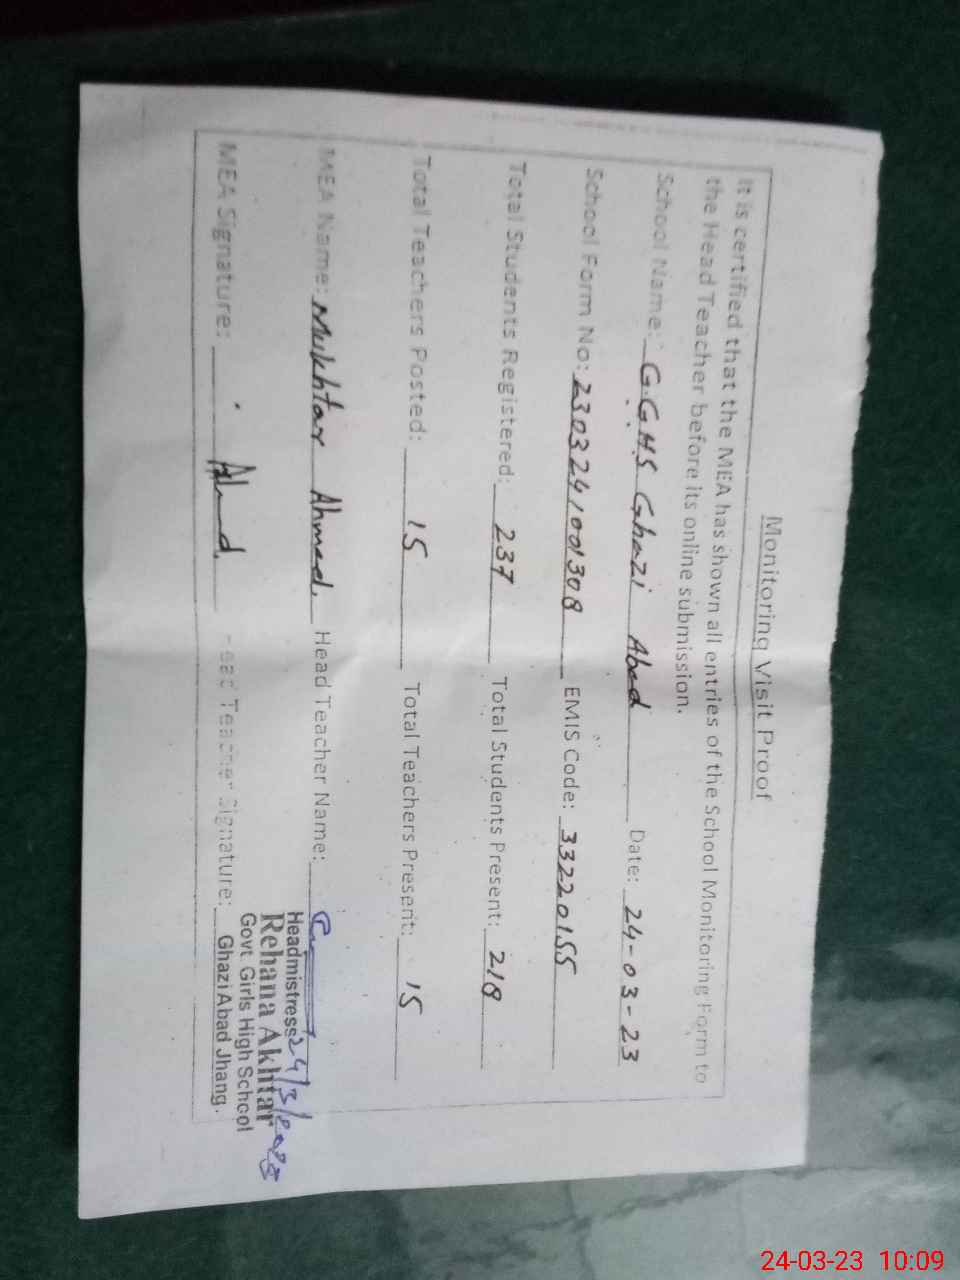 Monitoring Visit Proof
It is certified that the MEA has shown all entries of the School Monitoring Form to
the Head Teacher before its online submission.
School Name: G.GHS Ghazi Abad Date: 24-03-23
School Form No: 2303241001308 EMIS Code: 33220155
Total Students Registered: 237 Total Students Present: 218
Total Teachers Posted: 15 Total Teachers Present: 15
MEA Name: Mukhtar Ahmed. Head Teacher Name:
Headmistress 24/3/2023
Rehana Akhtar
MEA Signature: Head Teacher Signature:
Govt. Girls High School
Ghazi Abad Jhang.
24-03-23 10:09